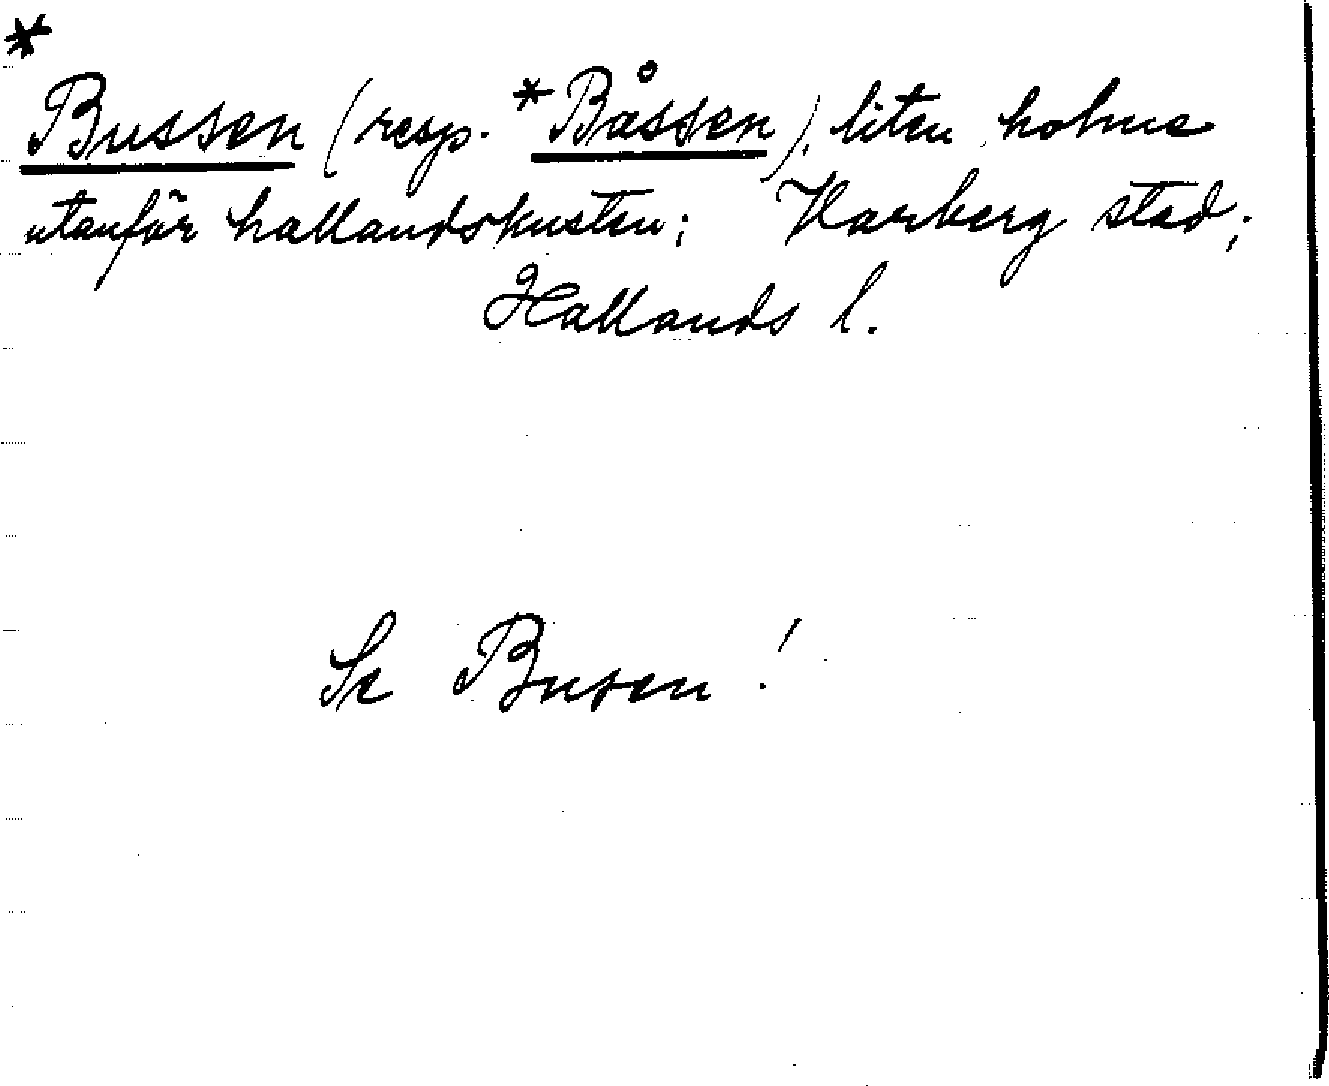 *
Bussen (resp. *Båssen), liten holme
utanför hallandskusten; Varberg stad;
Hallands l.
Se Busen!